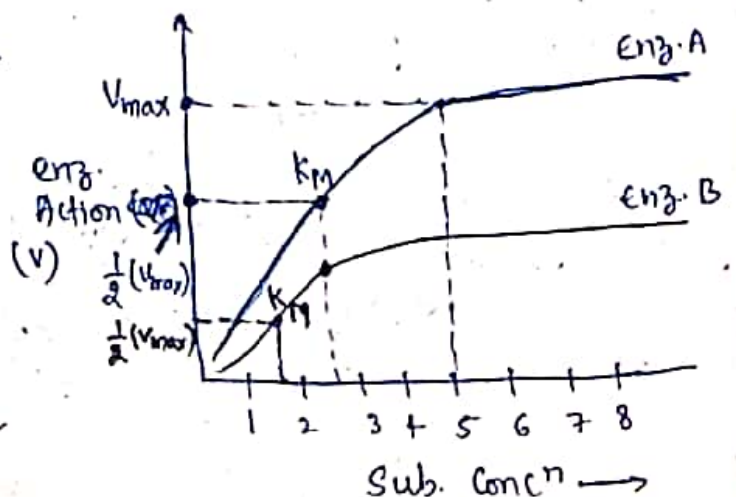 Enz. A
Vmax
enz.
Action
(V)
KM
Enz. B
½(Vmax)
KM
½(Vmax)
1 2 3 4 5 6 7 8
Sub. Concⁿ ⟶